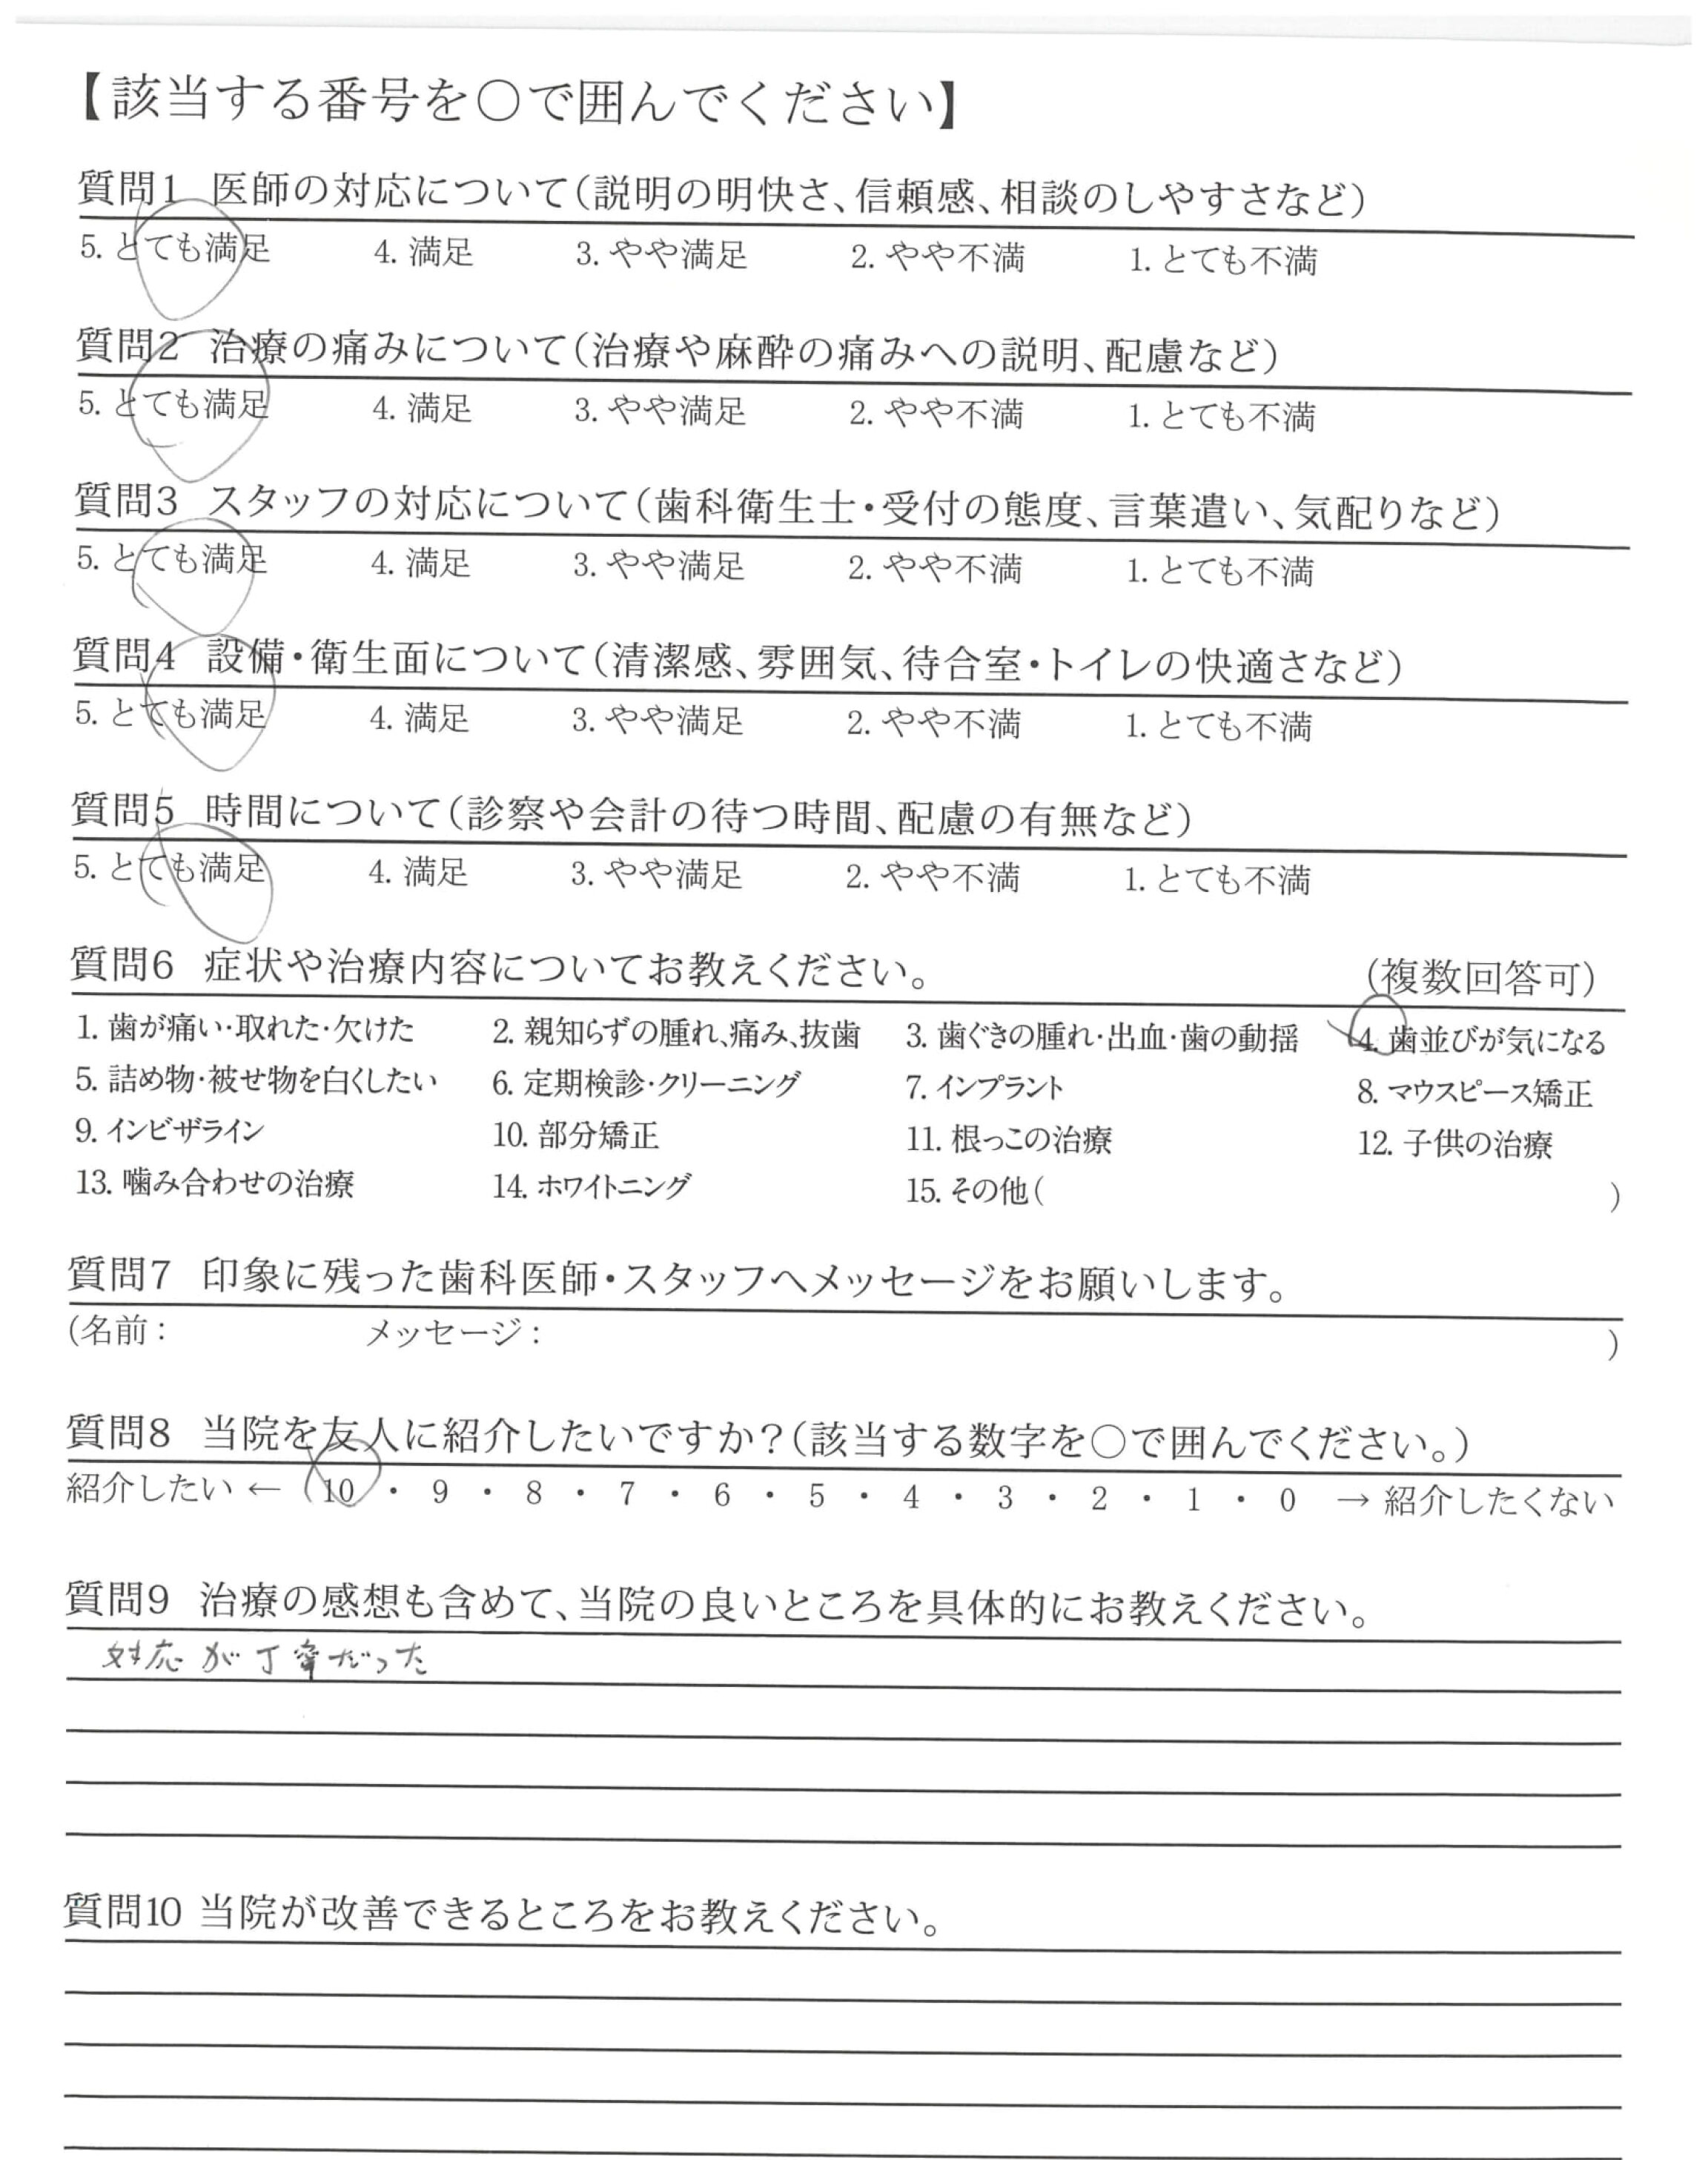 【該当する番号を○で囲んでください】
質問1 医師の対応について(説明の明快さ、信頼感、相談のしやすさなど)
5. とても満足 4. 満足 3. やや満足 2. やや不満 1. とても不満
質問2 治療の痛みについて(治療や麻酔の痛みへの説明、配慮など)
5. とても満足 4. 満足 3. やや満足 2. やや不満 1. とても不満
質問3 スタッフの対応について(歯科衛生士・受付の態度、言葉遣い、気配りなど)
5. とても満足 4. 満足 3. やや満足 2. やや不満 1. とても不満
質問4 設備・衛生面について(清潔感、雰囲気、待合室・トイレの快適さなど)
5. とても満足 4. 満足 3. やや満足 2. やや不満 1. とても不満
質問5 時間について(診察や会計の待つ時間、配慮の有無など)
5. とても満足 4. 満足 3. やや満足 2. やや不満 1. とても不満
質問6 症状や治療内容についてお教えください。 (複数回答可)
1. 歯が痛い・取れた・欠けた 2. 親知らずの腫れ、痛み、抜歯 3. 歯ぐきの腫れ・出血・歯の動揺 4. 歯並びが気になる
5. 詰め物・被せ物を白くしたい 6. 定期検診・クリーニング 7. インプラント 8. マウスピース矯正
9. インビザライン 10. 部分矯正 11. 根っこの治療 12. 子供の治療
13. 噛み合わせの治療 14. ホワイトニング 15. その他( )
質問7 印象に残った歯科医師・スタッフへメッセージをお願いします。
(名前: メッセージ: )
質問8 当院を友人に紹介したいですか?(該当する数字を○で囲んでください。)
紹介したい ← 10 ・ 9 ・ 8 ・ 7 ・ 6 ・ 5 ・ 4 ・ 3 ・ 2 ・ 1 ・ 0 → 紹介したくない
質問9 治療の感想も含めて、当院の良いところを具体的にお教えください。
対応が丁寧だった
質問10 当院が改善できるところをお教えください。